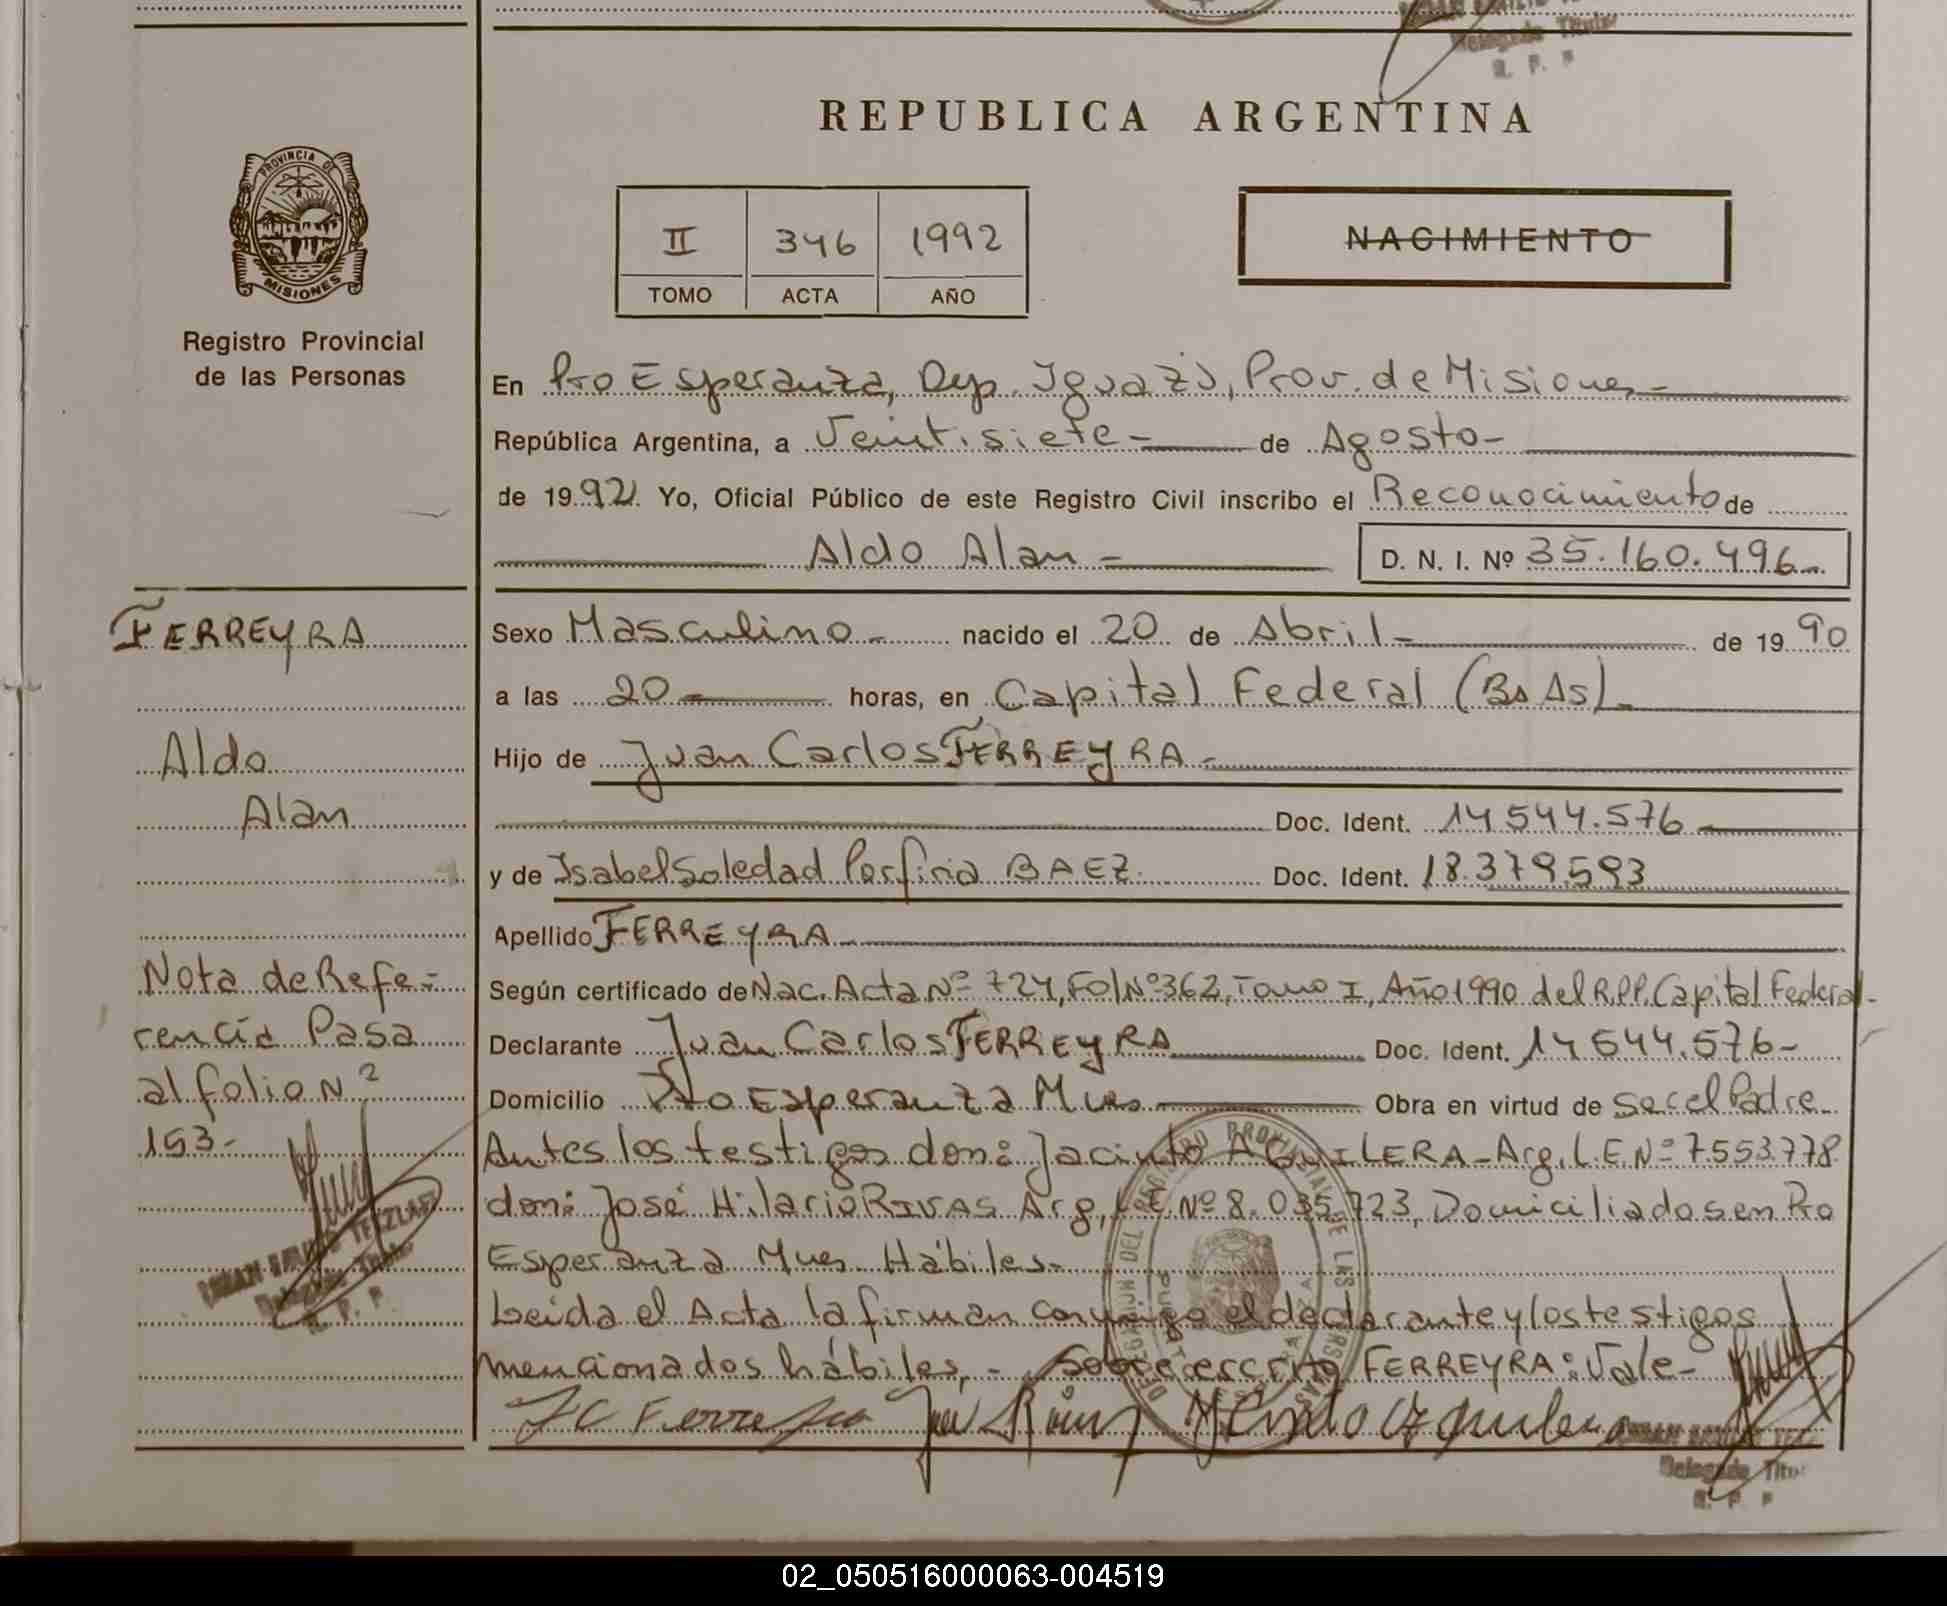 Delegado Titular
R. P. P
REPUBLICA ARGENTINA
PROVINCIA DE
MISIONES
Registro Provincial
de las Personas
II 346 1992
TOMO ACTA AÑO
NACIMIENTO
En Pto Esperanza, Dep. Iguazú, Prov. de Misiones-
República Argentina, a Veintisiete- de Agosto-
de 1992. Yo, Oficial Público de este Registro Civil inscribo el Reconocimiento de
Aldo Alan - D. N. I. Nº 35.160.496-
FERREYRA
Aldo
Alan
Nota de Refe-
rencia Pasa
al folio Nº
153-
Delegado Titular
R. P. P.
Sexo Masculino- nacido el 20 de Abril- de 1990
a las 20 horas, en Capital Federal (Bs As)-
Hijo de Juan Carlos FERREYRA-
Doc. Ident. 14544.576
y de Isabel Soledad Porfiria BAEZ Doc. Ident. 18.379.593
Apellido FERREYRA
Según certificado de Nac. Acta Nº 724, Fol Nº 362, Tomo I, Año 1990 del R.P.P. Capital Federal-
Declarante Juan Carlos FERREYRA Doc. Ident. 14544.576-
Domicilio Pto Esperanza Mnes Obra en virtud de ser el Padre
Antes los testigos don: Jacinto AGUILERA-Arg, L.E. Nº 7553.778
don: José Hilario RIVAS Arg, L.E. Nº 8.035.723, Domiciliados en Pto
Esperanza Mnes Hábiles-
Leida el Acta la firman conmigo el declarante y los testigos
mencionados hábiles,- Sobreescrito FERREYRA: Vale-
J C Ferreyra
Delegado Titular
R. P. P
02_050516000063-004519